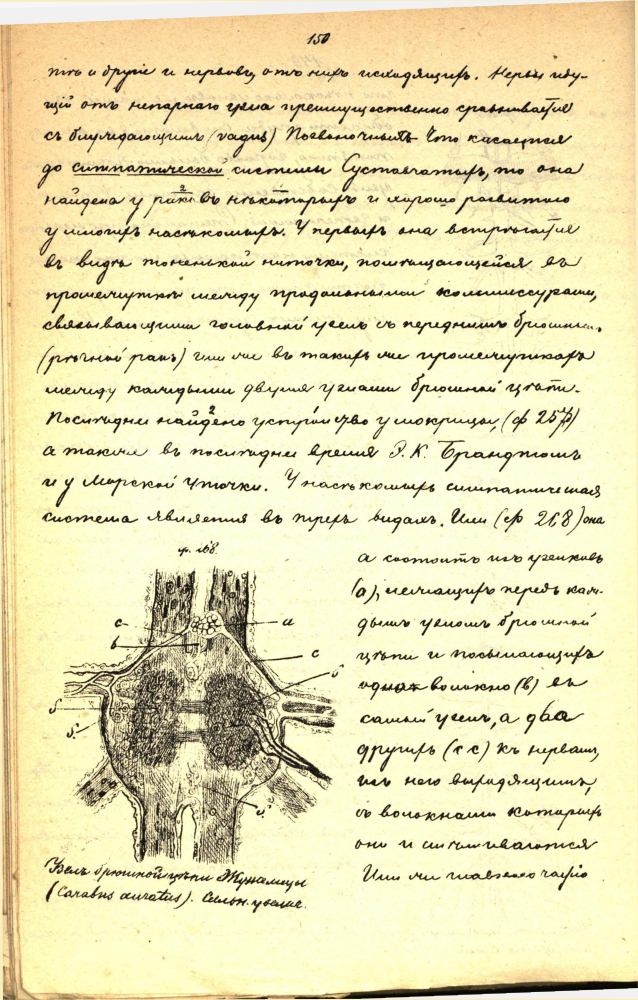 150
тѣ и другіе и нервовъ, отъ нихъ исходящихъ. Нервы иду-
щій отъ непарнаго узла преимущественно сравнивается
съ блуждающимъ (vagus) Позвоночныхъ. Что касается
до симпатической системы Суставчатыхъ, то она
найдена у рака въ нѣкоторыхъ и хорошо развитою
у многихъ насѣкомыхъ. У первыхъ она встрѣчается
въ видѣ тоненькой ниточки, помѣщающейся въ
промежуткѣ между продольными коммиссурами,
связывающими головной узелъ съ переднимъ брюшнымъ
(рѣчной ракъ) или же въ такихъ же промежуткахъ
между каждыми двумя узлами брюшной цѣпи.
Послѣднее найдено у мокрицы, (ф 257)
а также въ послѣднее время Э. К. Брандтомъ
и у Морской Уточки. У насѣкомыхъ симпатическая
система является въ трехъ видахъ. Или (ф 268) она
а состоитъ изъ узелковъ
(а), лежащихъ передъ каж-
дымъ узломъ брюшной
цѣпи и посылающихъ
одно волокно (b) въ
самый узелъ, а два
другихъ (c c) къ нервамъ,
изъ него выходящимъ,
съ волокнами которыхъ
они и смѣшиваются
Или же главною частію
ф. 268.
c
a
b
c
Узелъ брюшной цѣпи Жужелицы
(Carabus auratus). Сильн. увелич.